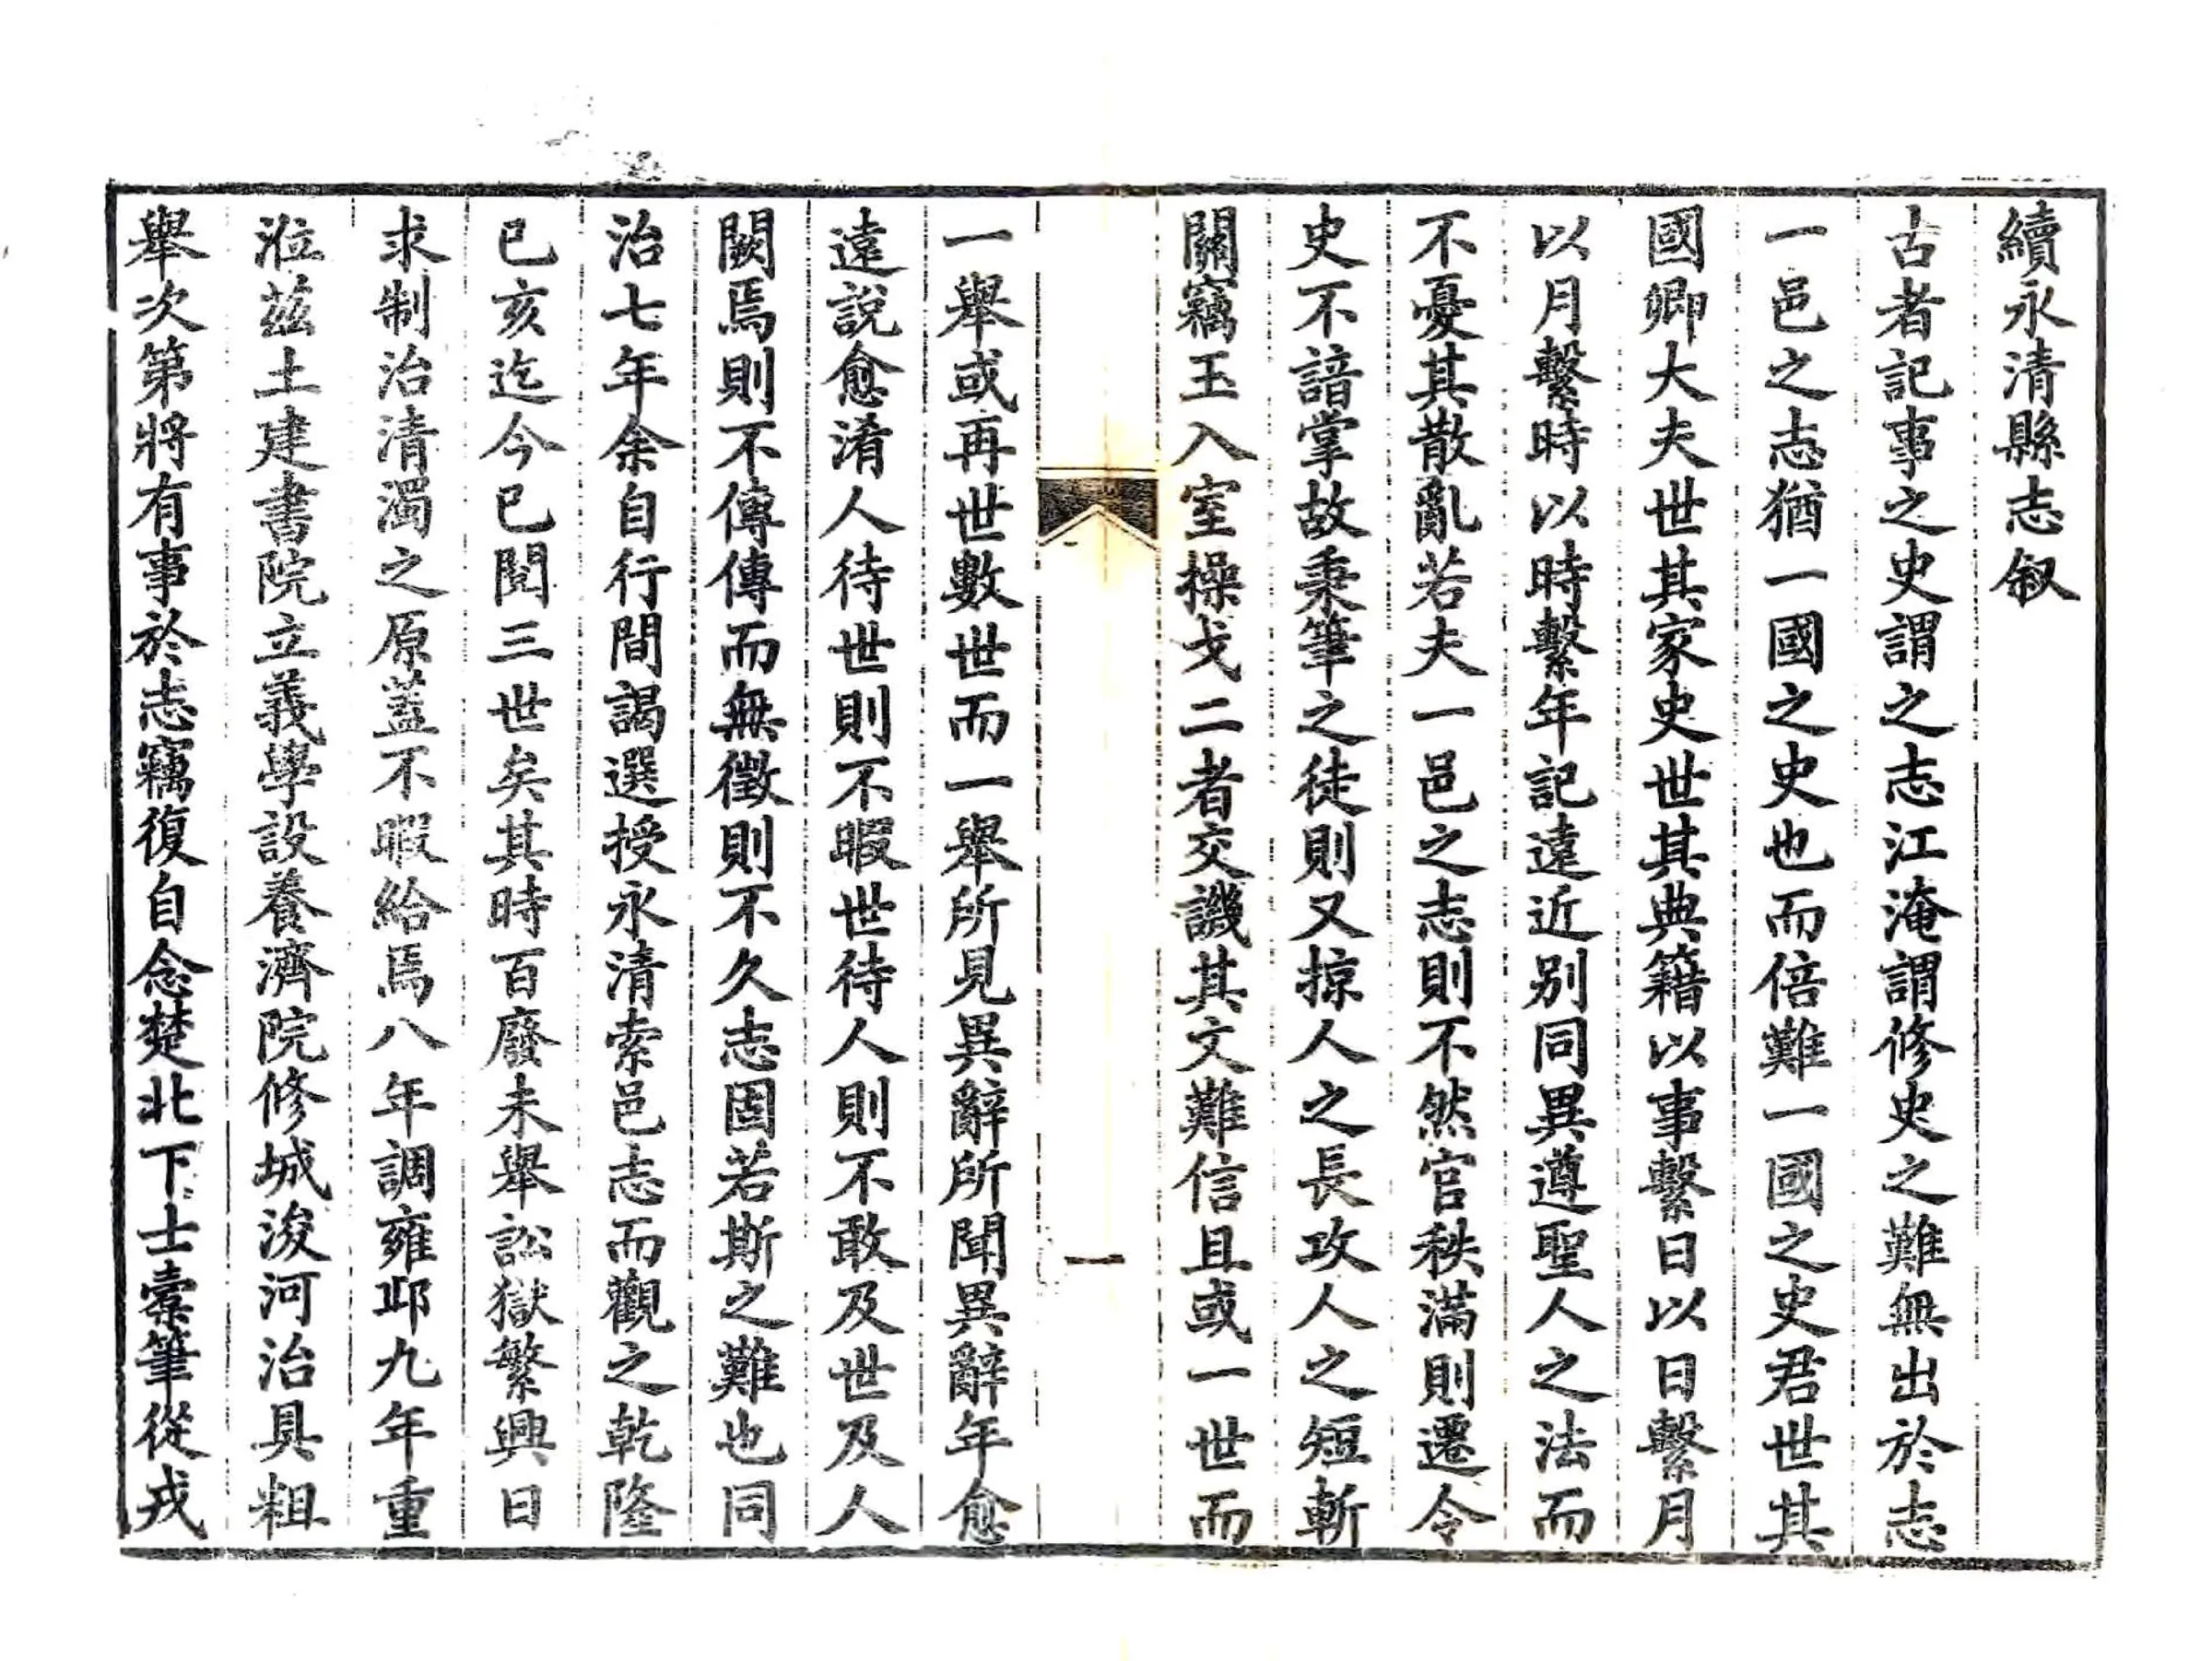 續永清縣志叙
古者記事之史謂之志江淹謂修史之難無出於志
一邑之志猶一國之史也而倍難一國之史君世其
國卿大夫世其家史世其典籍以事繫日以日繫月
以月繫時以時繫年記遠近别同異遵聖人之法而
不憂其散亂若夫一邑之志則不然官秩滿則遷令
史不諳掌故秉筆之徒則又掠人之長攻人之短斬
關竊玉入室操戈二者交譏其文難信且或一世而
一
一舉或再世數世而一舉所見異辭所聞異辭年愈
遠說愈淆人待世則不暇世待人則不敢及世及人
闕焉則不傳傳而無徵則不久志固若斯之難也同
治七年余自行間謁選授永清索邑志而觀之乾隆
已亥迄今已閱三世矣其時百廢未舉訟獄繁興日
求制治清濁之原蓋不暇給焉八年調雍邱九年重
涖茲土建書院立義學設養濟院修城浚河治具粗
舉次第將有事於志竊復自念楚北下士橐筆從戎